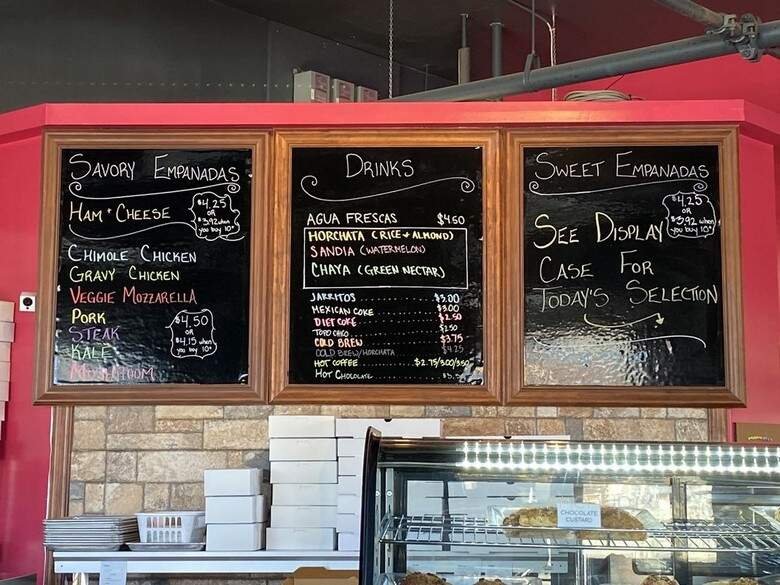 SAVORY EMPANADAS
HAM + CHEESE
$4.25
OR
$3.92 when
you buy 10+
CHIMOLE CHICKEN
GRAVY CHICKEN
VEGGIE MOZZARELLA
PORK
STEAK
KALE
MUSHROOM
$4.50
OR
$4.15 when
you buy 10+
DRINKS
AGUA FRESCAS $4.50
HORCHATA (RICE + ALMOND)
SANDIA (WATERMELON)
CHAYA (GREEN NECTAR)
JARRITOS ........ $3.00
MEXICAN COKE ........ $3.00
DIET COKE ........ $2.50
TOPO CHICO ........ $2.50
COLD BREW ........ $3.75
COLD BREW/HORCHATA $4.25
HOT COFFEE ........ $2.75/3.00/3.50
HOT CHOCOLATE
SWEET EMPANADAS
$4.25
OR
$3.92 when
you buy 10+
SEE DISPLAY
CASE FOR
TODAY'S SELECTION
CHOCOLATE
CUSTARD